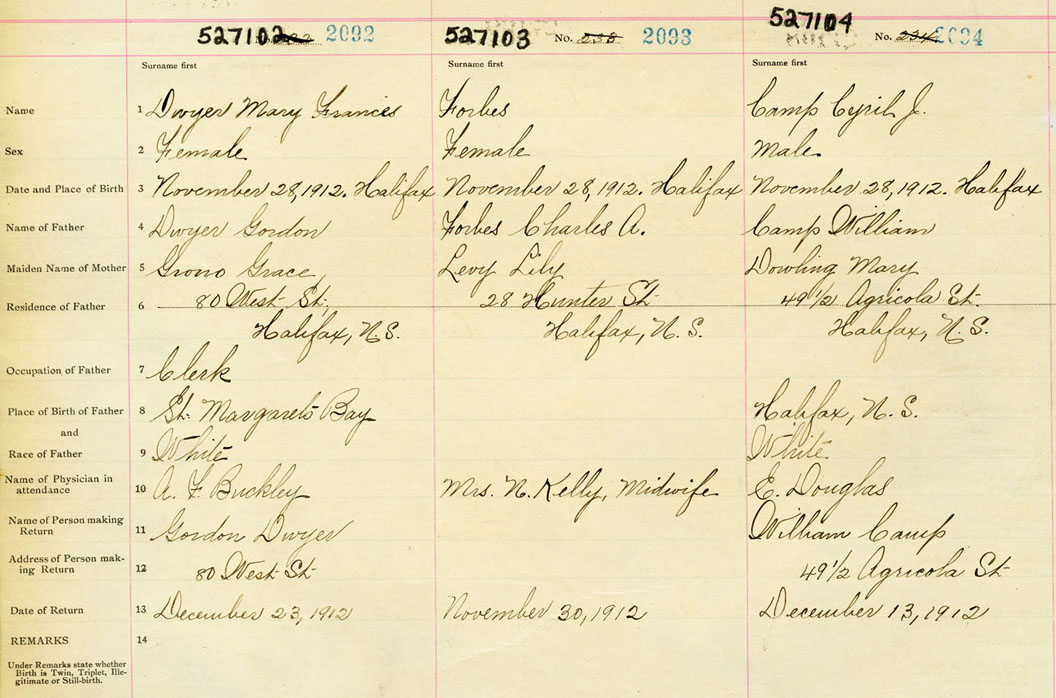 527102 2092 527103 No. 233 2093 527104 No. 234 2094
Surname first Surname first Surname first
Name 1 Dwyer Mary Francis Forbes Camp Cyril J.
Sex 2 Female Female Male
Date and Place of Birth 3 November 28, 1912. Halifax November 28, 1912. Halifax November 28, 1912. Halifax
Name of Father 4 Dwyer Gordon Forbes Charles A. Camp William
Maiden Name of Mother 5 Grono Grace Levy Lily Dowling Mary
Residence of Father 6 80 West St. 28 Hunter St 49 1/2 Agricola St.
Halifax, N.S. Halifax, N.S. Halifax, N.S.
Occupation of Father 7 Clerk
Place of Birth of Father 8 St. Margarets Bay Halifax, N.S.
and
Race of Father 9 White White
Name of Physician in attendance 10 A. F. Buckley Mrs. N. Kelly, Midwife E. Douglas
Name of Person making Return 11 Gordon Dwyer William Camp
Address of Person mak-
ing Return 12 80 West St 49 1/2 Agricola St
Date of Return 13 December 23, 1912 November 30, 1912 December 13, 1912
REMARKS 14
Under Remarks state whether
Birth is Twin, Triplet, Ille-
gitimate or Still-birth.